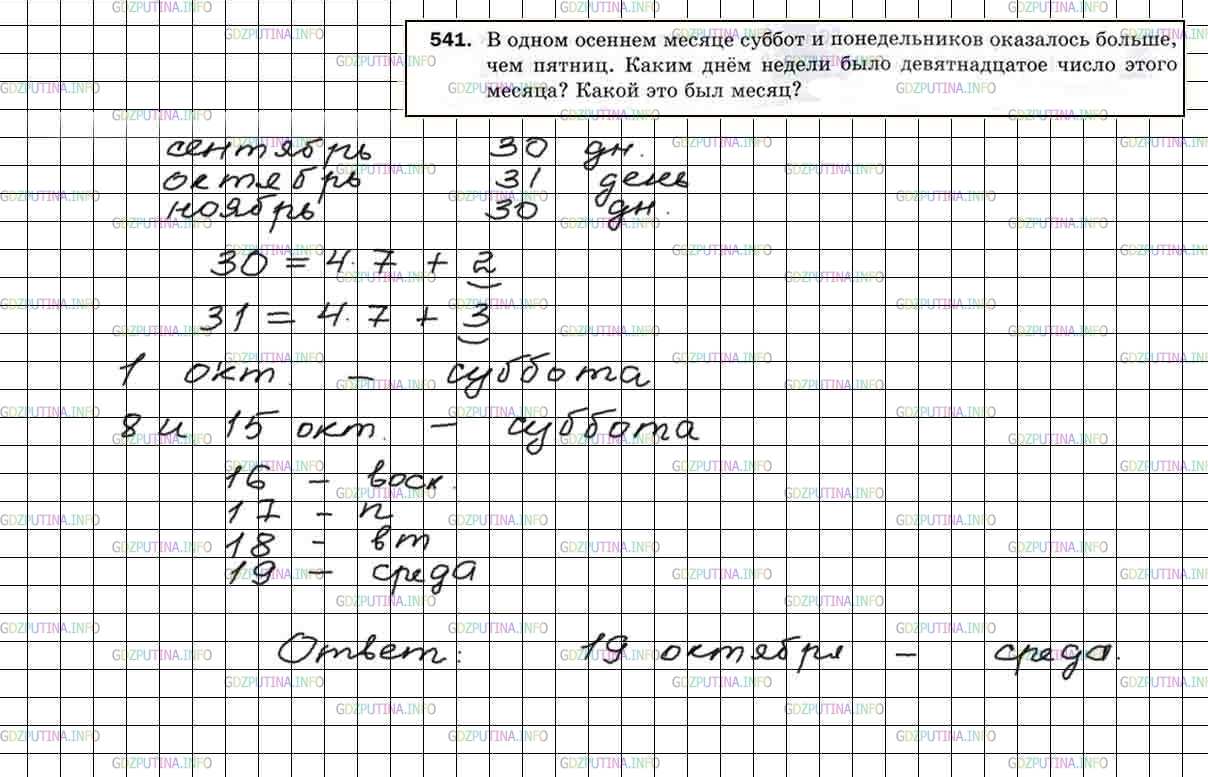 541. В одном осеннем месяце суббот и понедельников оказалось больше,
чем пятниц. Каким днём недели было девятнадцатое число этого
месяца? Какой это был месяц?
сентябрь 30 дн.
октябрь 31 день
ноябрь 30 дн.
30 = 4·7 + 2
31 = 4·7 + 3
1 окт. – суббота
8 и 15 окт. – суббота
16 – воск.
17 – п
18 – вт
19 – среда
Ответ: 19 октября – среда.
GDZPUTINA.INFO